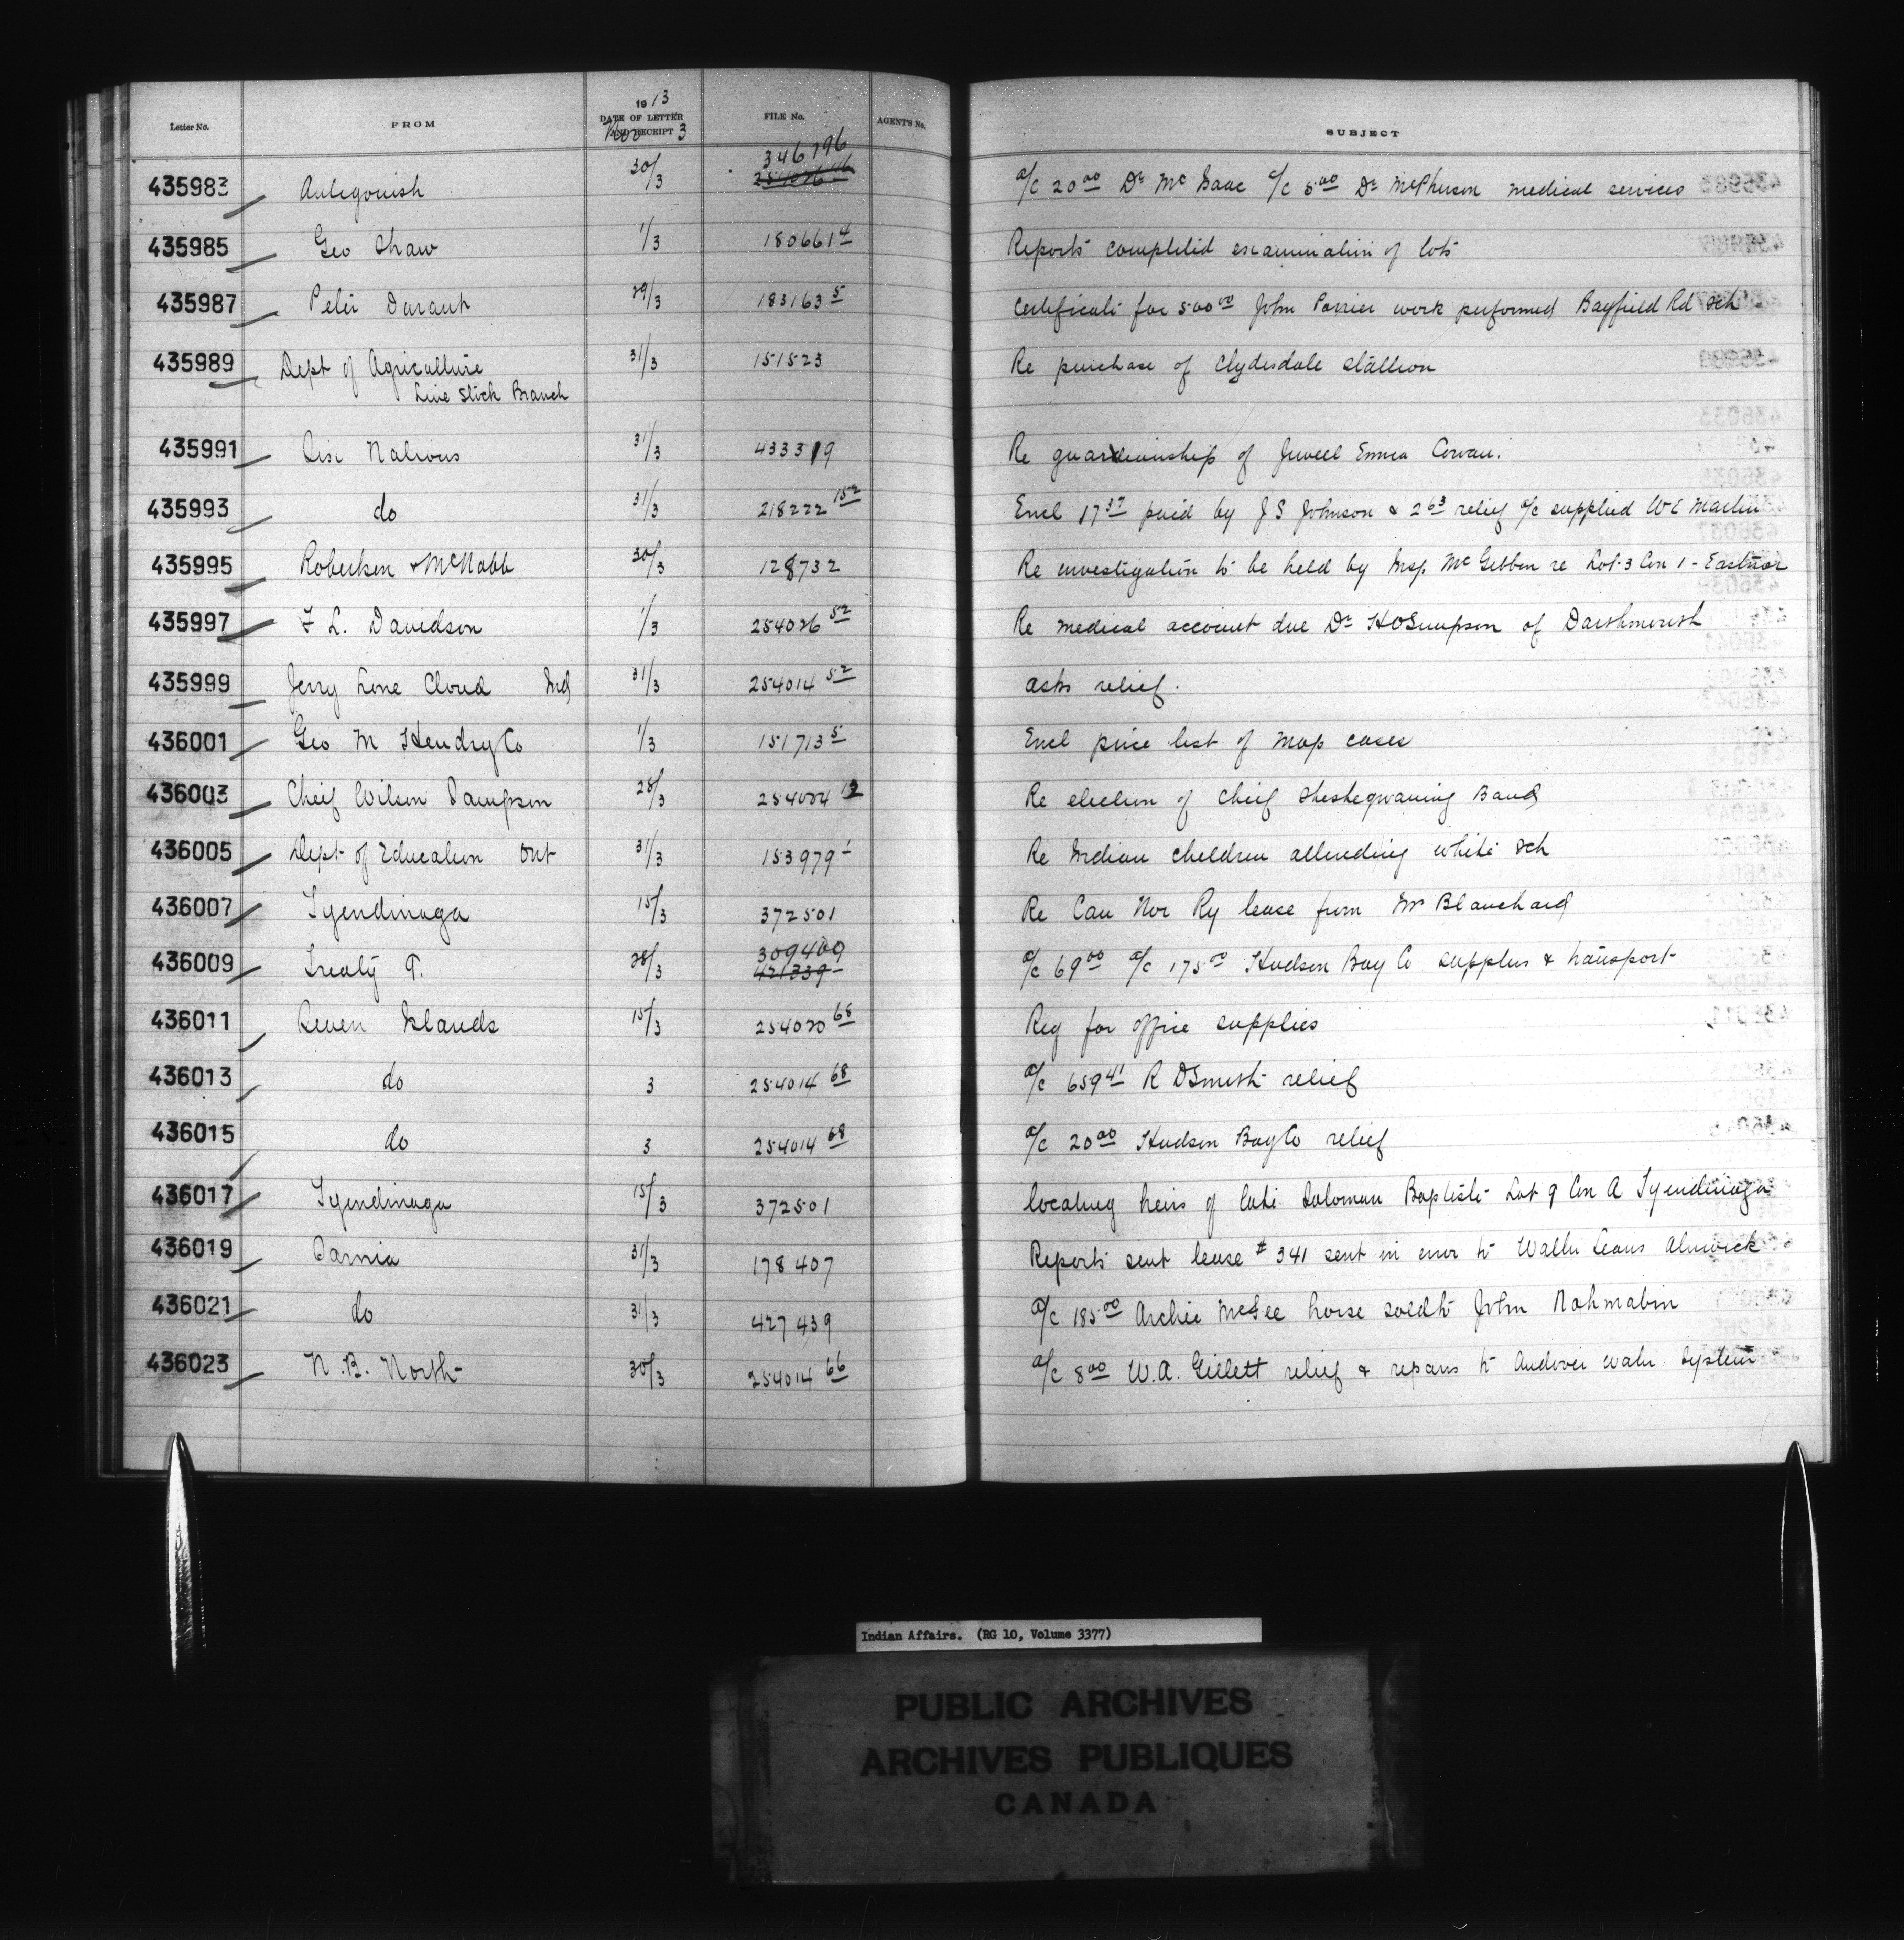 Letter No. FROM 1913 DATE OF LETTER AND RECEIPT Nov 3 FILE No. AGENT'S No. SUBJECT
346796
435983 Antigonish 30/3 a/c 20 00 Dr McIsaac a/c 5 00 Dr McPherson medical services
435985 Geo Shaw 1/3 180661 4 Reports completed examination of lots
435987 Peter Durant 29/3 183163 5 Certificate for 500 00 John Perrier work performed Bayfield Rd sch
435989 Dept of Agriculture 31/3 151523 Re purchase of Clydesdale stallion
Live Stock Branch
435991 Six Nations 31/3 433319 Re guardianship of Jewell Emma Cowan.
435993 do 31/3 218222 152 Encl 17 37 paid by J S Johnson & 2 63 relief a/c supplied W C Martin
435995 Robertson & McNabb 30/3 128732 Re investigation to be held by Insp. McGibbon re Lot 3 Con 1 - Eastnor
435997 F L. Davidson 1/3 254026 52 Re medical account due Dr H O Simpson of
435999 Jerry Lone Cloud Ind 31/3 254014 52 asks relief.
436001 Geo M Hendry Co 1/3 151713 5 Encl price list of map cases
436003 Chief Wilson Sampson 28/3 254024 12 Re election of Chief Sheshegwaning Band
436005 Dept of Education Ont 31/3 153979 1 Re Indian children attending white sch
436007 Tyendinaga 15/3 372501 Re Can Nor Ry lease from Mr Blanchard
309400
436009 Treaty 9. 28/3 421339 a/c 69 00 a/c 175 00 Hudson Bay Co supplies & transport
436011 Seven Islands 15/3 254020 68 Req for office supplies
436013 do 3 254014 68 a/c 659 41 R D Smith relief
436015 do 3 254014 68 a/c 20 00 Hudson Bay Co relief
436017 Tyendinaga 15/3 372501 locating heirs of late Solomon Baptiste Lot 9 Con A Tyendinaga
436019 Sarnia 31/3 178407 Reports sent lease # 341 sent in error to Walter Leans Alnwick
436021 do 31/3 427439 a/c 185 00 Archie McGee horse sold to John Nahmabin
436023 N.B. North 30/3 254014 66 a/c 8 00 W.A. Gillett relief & repairs to Andover water system
Indian Affairs. (RG 10, Volume 3377)
PUBLIC ARCHIVES
ARCHIVES PUBLIQUES
CANADA